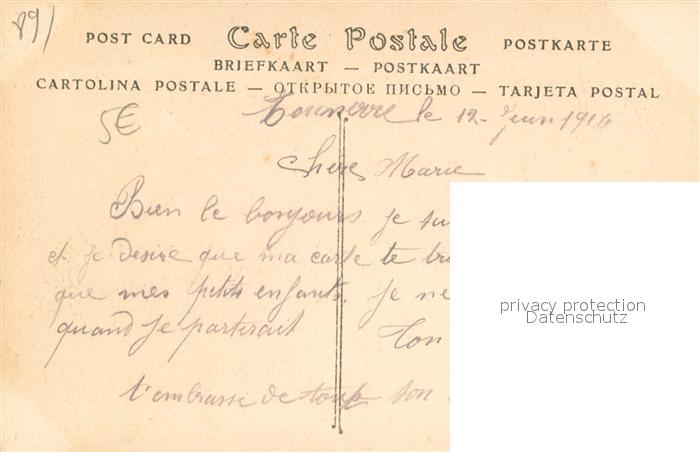 89/
POST CARD Carte Postale POSTKARTE
BRIEFKAART — POSTKAART
CARTOLINA POSTALE — ОТКРЫТОЕ ПИСЬМО — TARJETA POSTAL
5€
Tonnerre le 12 Juin 1916
chere Marie
Bien le bonjours je su
et je desire que ma carte te
que mes petits enfants. je ne
quand je partirait ton
t'embrasse de tout son
privacy protection
Datenschutz